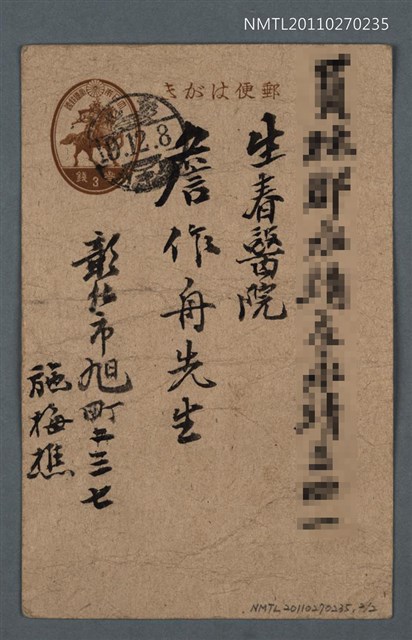 NMTL20110270235
郵便はがき
3
錢
12.8
生春醫院
詹作舟先生
彰化市旭町二三七
施梅樵
NMTL20110270235, 2/2